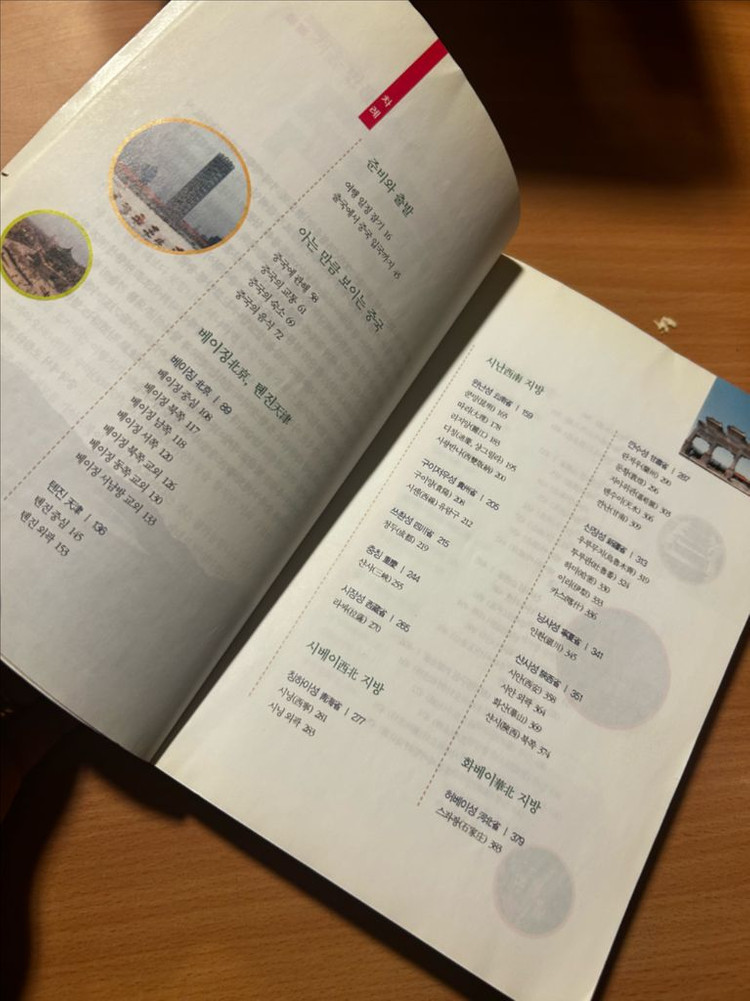 차례
준비와 출발
여행 일정 잡기 16
출국에서 중국 입국까지 45
아는 만큼 보이는 중국
중국에 관해 58
중국의 교통 61
중국의 숙소 69
중국의 음식 72
베이징北京, 톈진天津
베이징 北京 | 89
베이징 중심 109
베이징 북쪽 117
베이징 남쪽 118
베이징 서쪽 120
베이징 북쪽 교외 126
베이징 동쪽 교외 130
베이징 서남방 교외 133
톈진 天津 | 136
톈진 중심 145
톈진 외곽 153
시난西南 지방
윈난성 云南省 | 159
쿤밍(昆明) 165
따리(大理) 178
리지앙(麗江) 183
다칭(迪慶, 샹그릴라) 195
시솽반나(西雙版納) 200
구이저우성 貴州省 | 205
구이양(貴陽) 208
서男(西線) 유람구 212
쓰촨성 四川省 215
청두(成都) 219
충칭 重慶 | 244
산샤(三峽) 255
시짱성 西藏省 | 265
라싸(拉薩) 270
시베이西北 지방
칭하이성 靑海省 | 277
시닝(西寧) 281
시닝 외곽 285
깐수성 甘肅省 | 287
란저우(蘭州) 290
둔황(敦煌) 296
자위관(嘉峪關) 303
톈수이(天水) 306
깐난(甘南) 309
신장성 新疆省 | 313
우루무치(烏魯木齊) 319
투루판(吐魯番) 324
하미(哈密) 330
이리(伊犁) 333
카스(喀什) 336
닝샤성 寧夏省 | 341
인촨(銀川) 345
산시성 陝西省 | 351
시안(西安) 358
시안 외곽 364
화산(華山) 369
산시(陝西) 북쪽 374
화베이華北 지방
허베이성 河北省 | 379
스좌좡(石家庄) 383